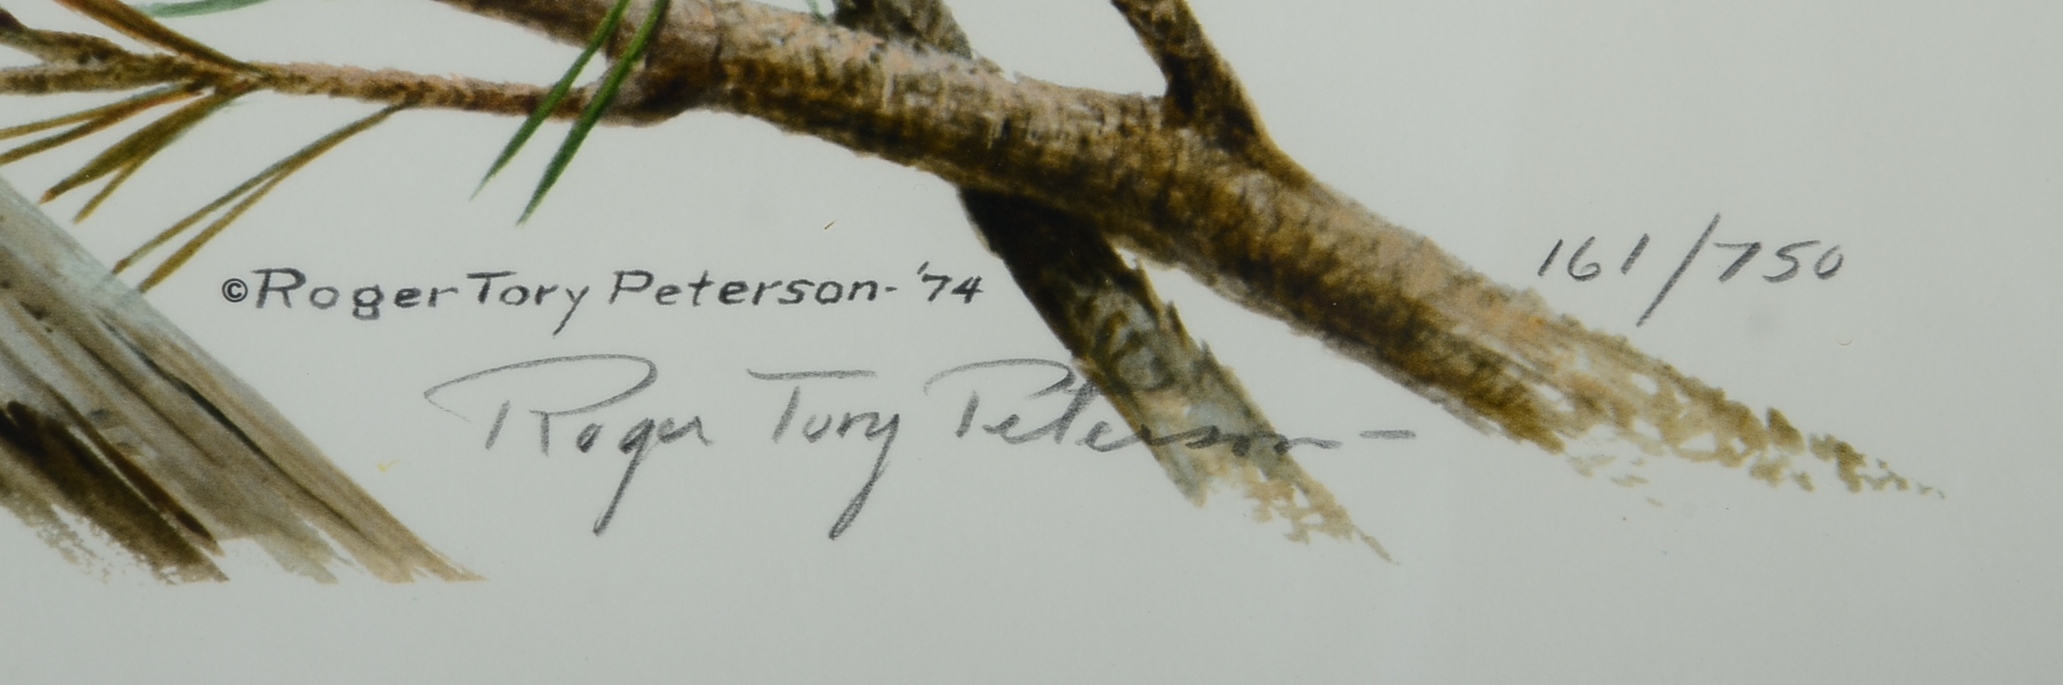 161/750
©Roger Tory Peterson-'74
Roger Tory Peterson-